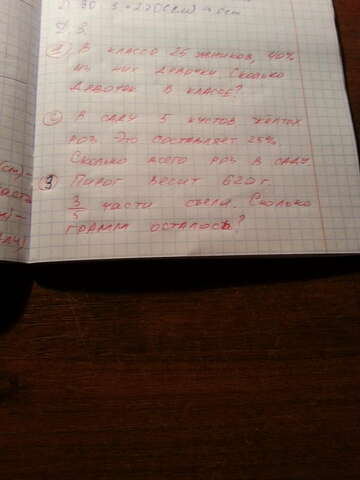 ① В классе 25 учеников, 40%
из них девочки. Сколько
девочек в классе?
② В саду 5 кустов желтых
роз. Это составляет 25%
Сколько всего роз в саду
③ Пирог весит 620 г.
3/5 части съели. Сколько
грамм осталось?